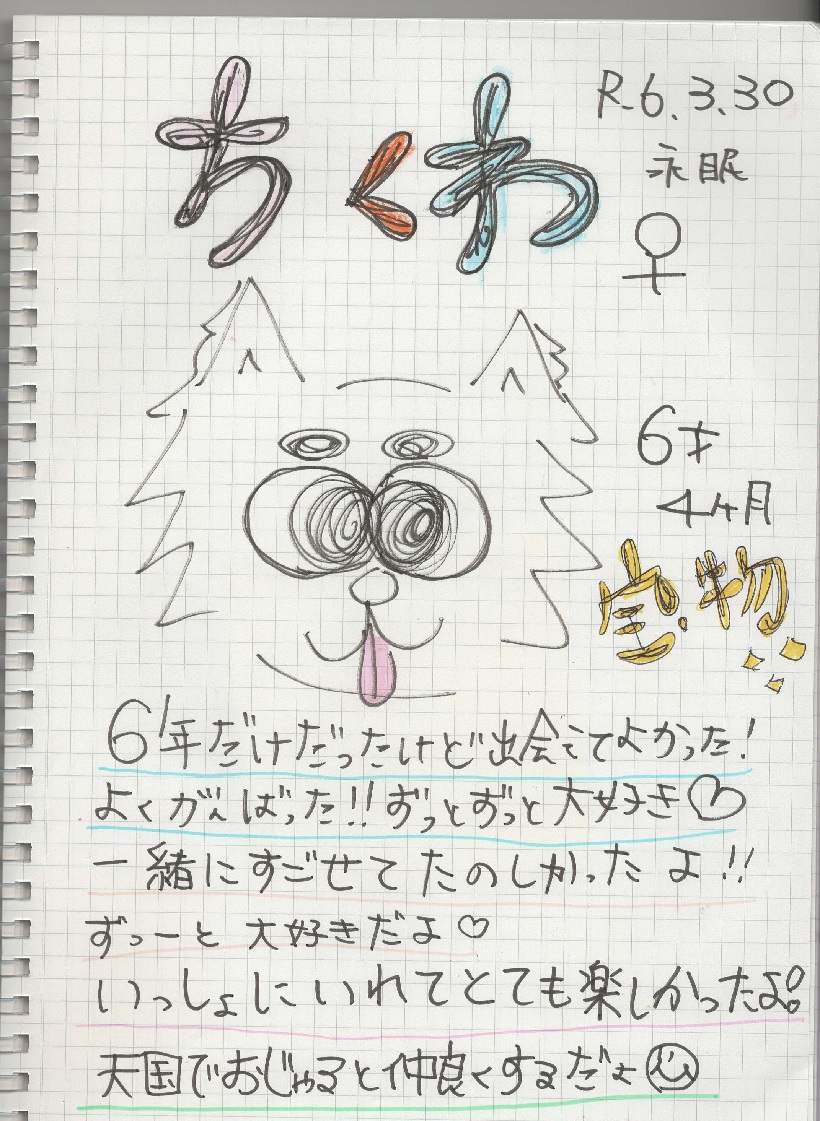 ちくわ
R.6.3.30
永眠
♀
6才
4ヶ月
宝物
6年だけだったけど出会えてよかった!
よくがんばった!!ずっとずっと大好き♡
一緒にすごせてたのしかったよ!!
ずっーと大好きだよ♡
いっしょにいれてとても楽しかったよ!
天国でおじゃると仲良くするだよ☺